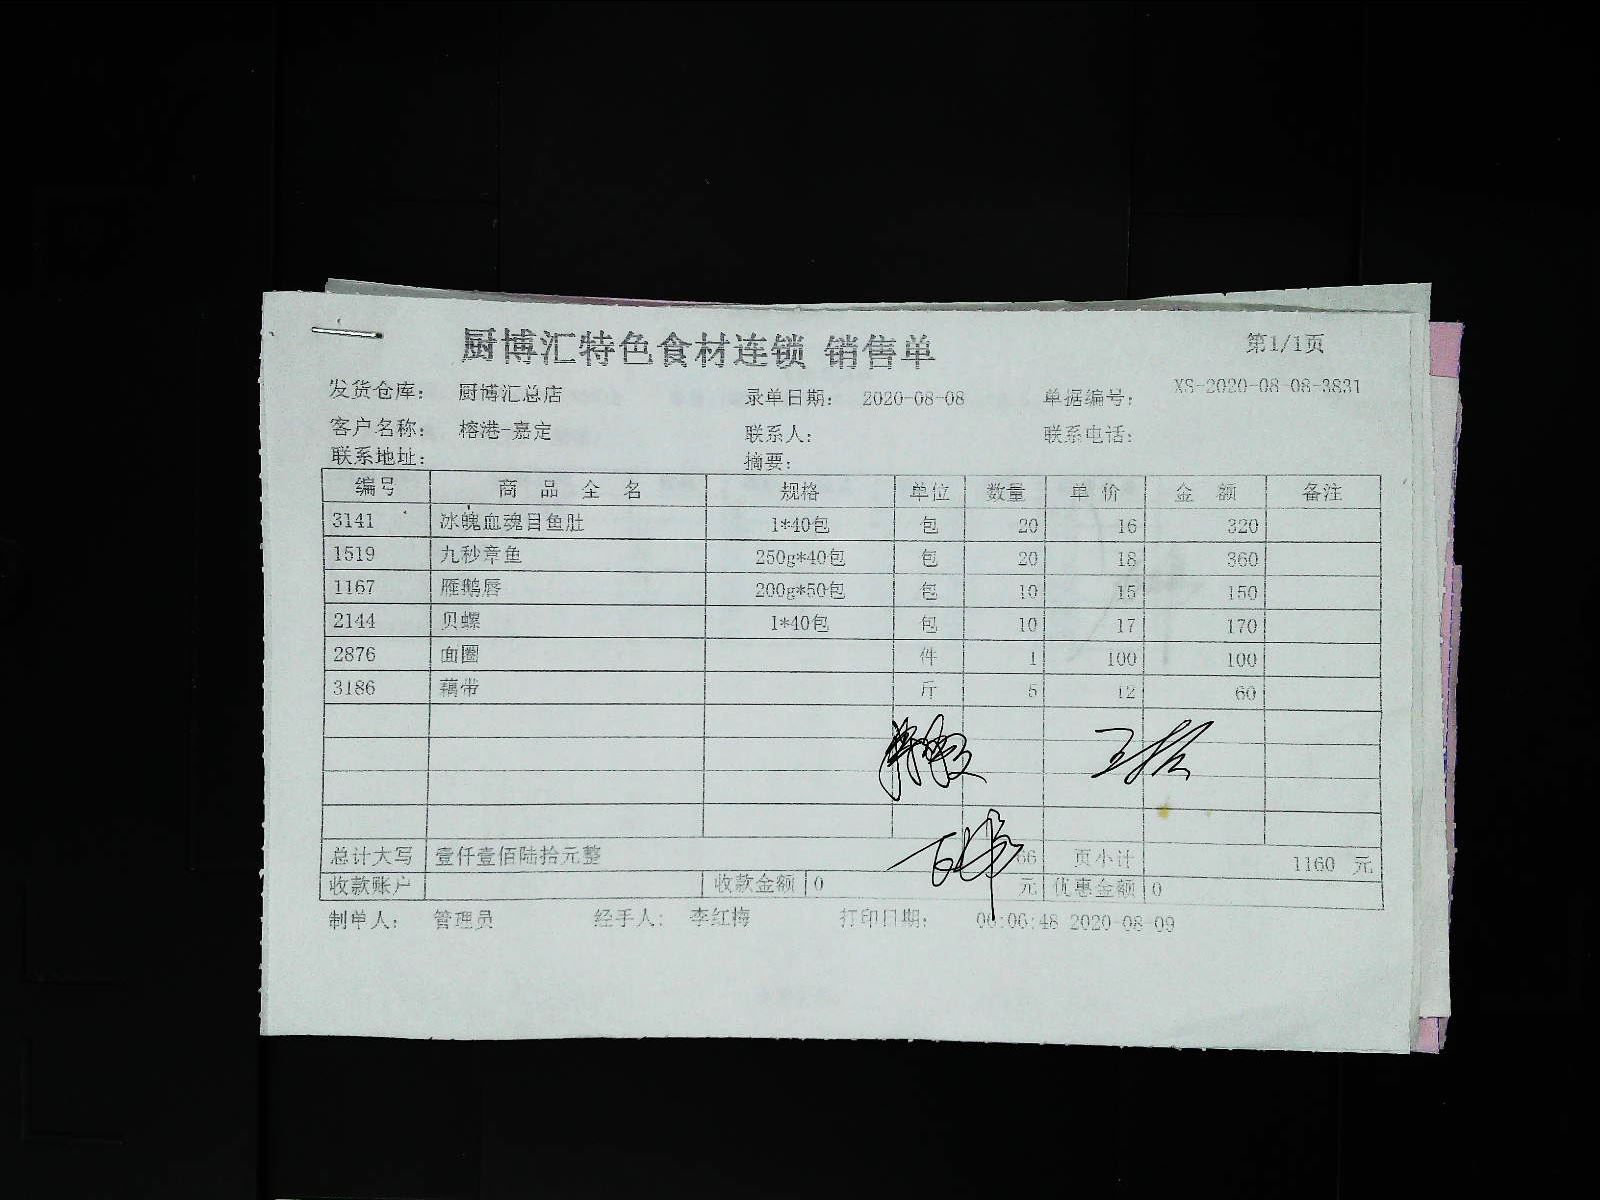 厨博汇特色食材连锁 销售单 第1/1页
发货仓库： 厨博汇总店 录单日期： 2020-08-08 单据编号： XS-2020-08-08-3831
客户名称： 榕港-嘉定 联系人： 联系电话：
联系地址： 摘要：
编号 商品全名 规格 单位 数量 单价 金额 备注
3141 冰魄血魂目鱼肚 1*40包 包 20 16 320
1519 九秒章鱼 250g*40包 包 20 18 360
1167 雁鹅唇 200g*50包 包 10 15 150
2144 贝螺 1*40包 包 10 17 170
2876 面圈 件 1 100 100
3186 藕带 斤 5 12 60
总计大写 壹仟壹佰陆拾元整 66 页小计 1160 元
收款账户 收款金额 0 元 优惠金额 0
制单人： 管理员 经手人： 李红梅 打印日期： 06:06:48 2020-08-09